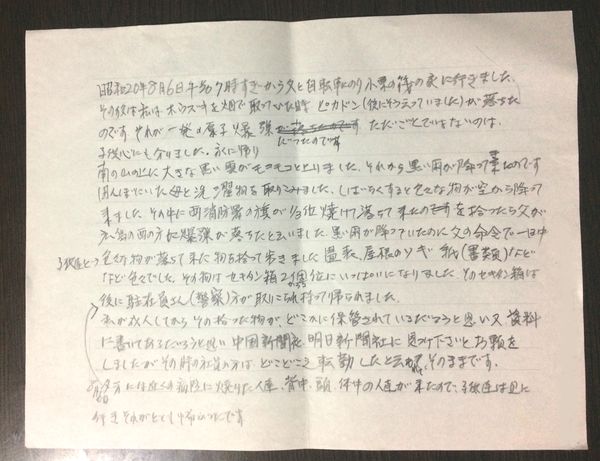 昭和20年8月6日午前7時すぎから父と自転車にのり小栗の筏の家に行きました、
その後は私はホウズキを畑で取っていた時ピカドン(後にそう云っていました)が落ちた
のです それが一発の原子爆弾だったのです ただごとではないのは、
子供心にも分りました。家に帰り
南の山の上に大きな黒い雲がモコモコと上りました。それから黒い雨が降って来たのです
田んぼにいた母と洗濯物を取りこみました。しばらくすると色々な物が空から降って
来ました。その中に西消防署の旗が 位焼けて落ちて来たのを拾ったら父が
広島の西の方に爆弾が落ちたと云いました。黒い雨が降っていたのに父の命令で一日中
子供達とっ 色々な物が落ちて来た物を拾って歩きました 畳表、屋根のソギ 紙(書類)など
など色々でした。その物はセキタン箱2個位にいっぱいになりました。そのセキタン箱は
後に駐在員さん(警察)方が取りにこられ持って帰られました。
私が成人してからその拾った物が、どこかに保管されているだろうと思い又資料
に書いてあるだろうと思い 中国新聞社、朝日新聞社に見つけ下さいとお願を
しましたがその時の社員の方は、どこどこえ転勤したと云われ、そのままです。
夕方には近くの病院に焼けた人達、背中、頭、体中の人達が来たので、子供達は見に
行きそれがとても